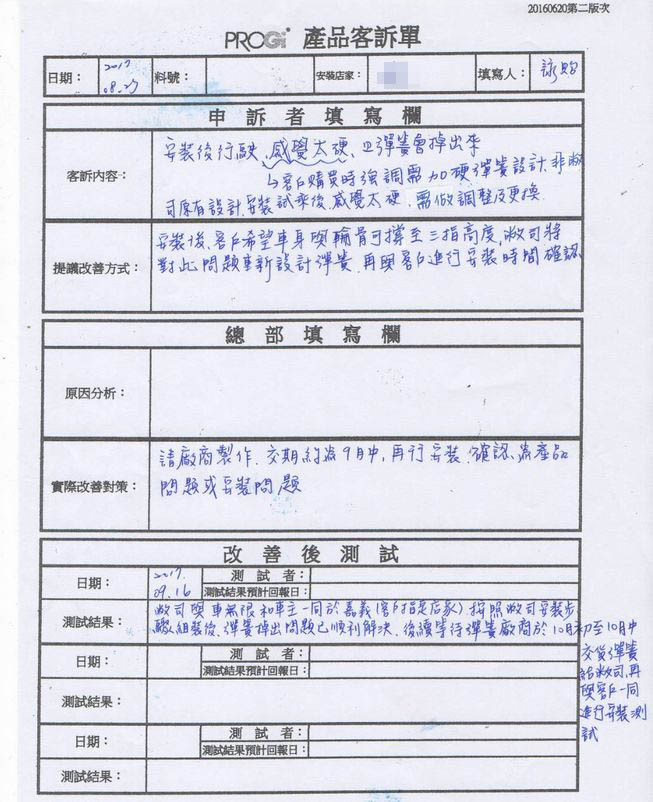 20160620第二版次
PROGi 產品客訴單
日期： 2017 08.27 料號： 安裝店家： 填寫人： 詠貽
申訴者填寫欄
客訴內容：
安裝後行駛,感覺太硬,且彈簧會掉出來
↳客戶購買時強調需加硬彈簧設計,非敝
司原有設計,安裝試乘後,感覺太硬,需做調整及更換.
提議改善方式：
安裝後,客戶希望車身與輪眉可撐至三指高度,敝司將
對此問題重新設計彈簧.再與客戶進行安裝時間確認
總部填寫欄
原因分析：
實際改善對策：
請廠商製作.交期約為9月中,再行安裝.確認為產品
問題或安裝問題
改善後測試
日期： 2017. 09.16 測試者：
測試結果預計回報日：
測試結果：
敝司與車無限和車主一同於嘉義(客戶指定店家)按照敝司安裝步
驟組裝後,彈簧掉出問題已順利解決.後續等待彈簧廠商於10月初至10月中
交貨彈簧
給敝司,再
與客戶一同
進行安裝測
試
日期： 測試者：
測試結果預計回報日：
測試結果：
日期： 測試者：
測試結果預計回報日：
測試結果：